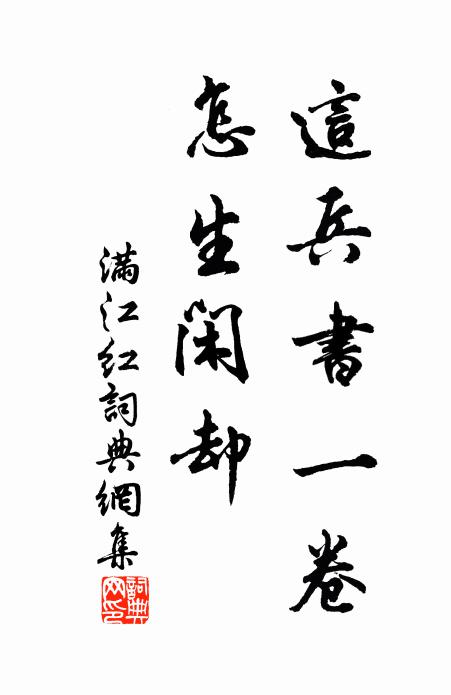 這兵書一卷
怎生閑却
滿江紅詞典網集
詞典網印